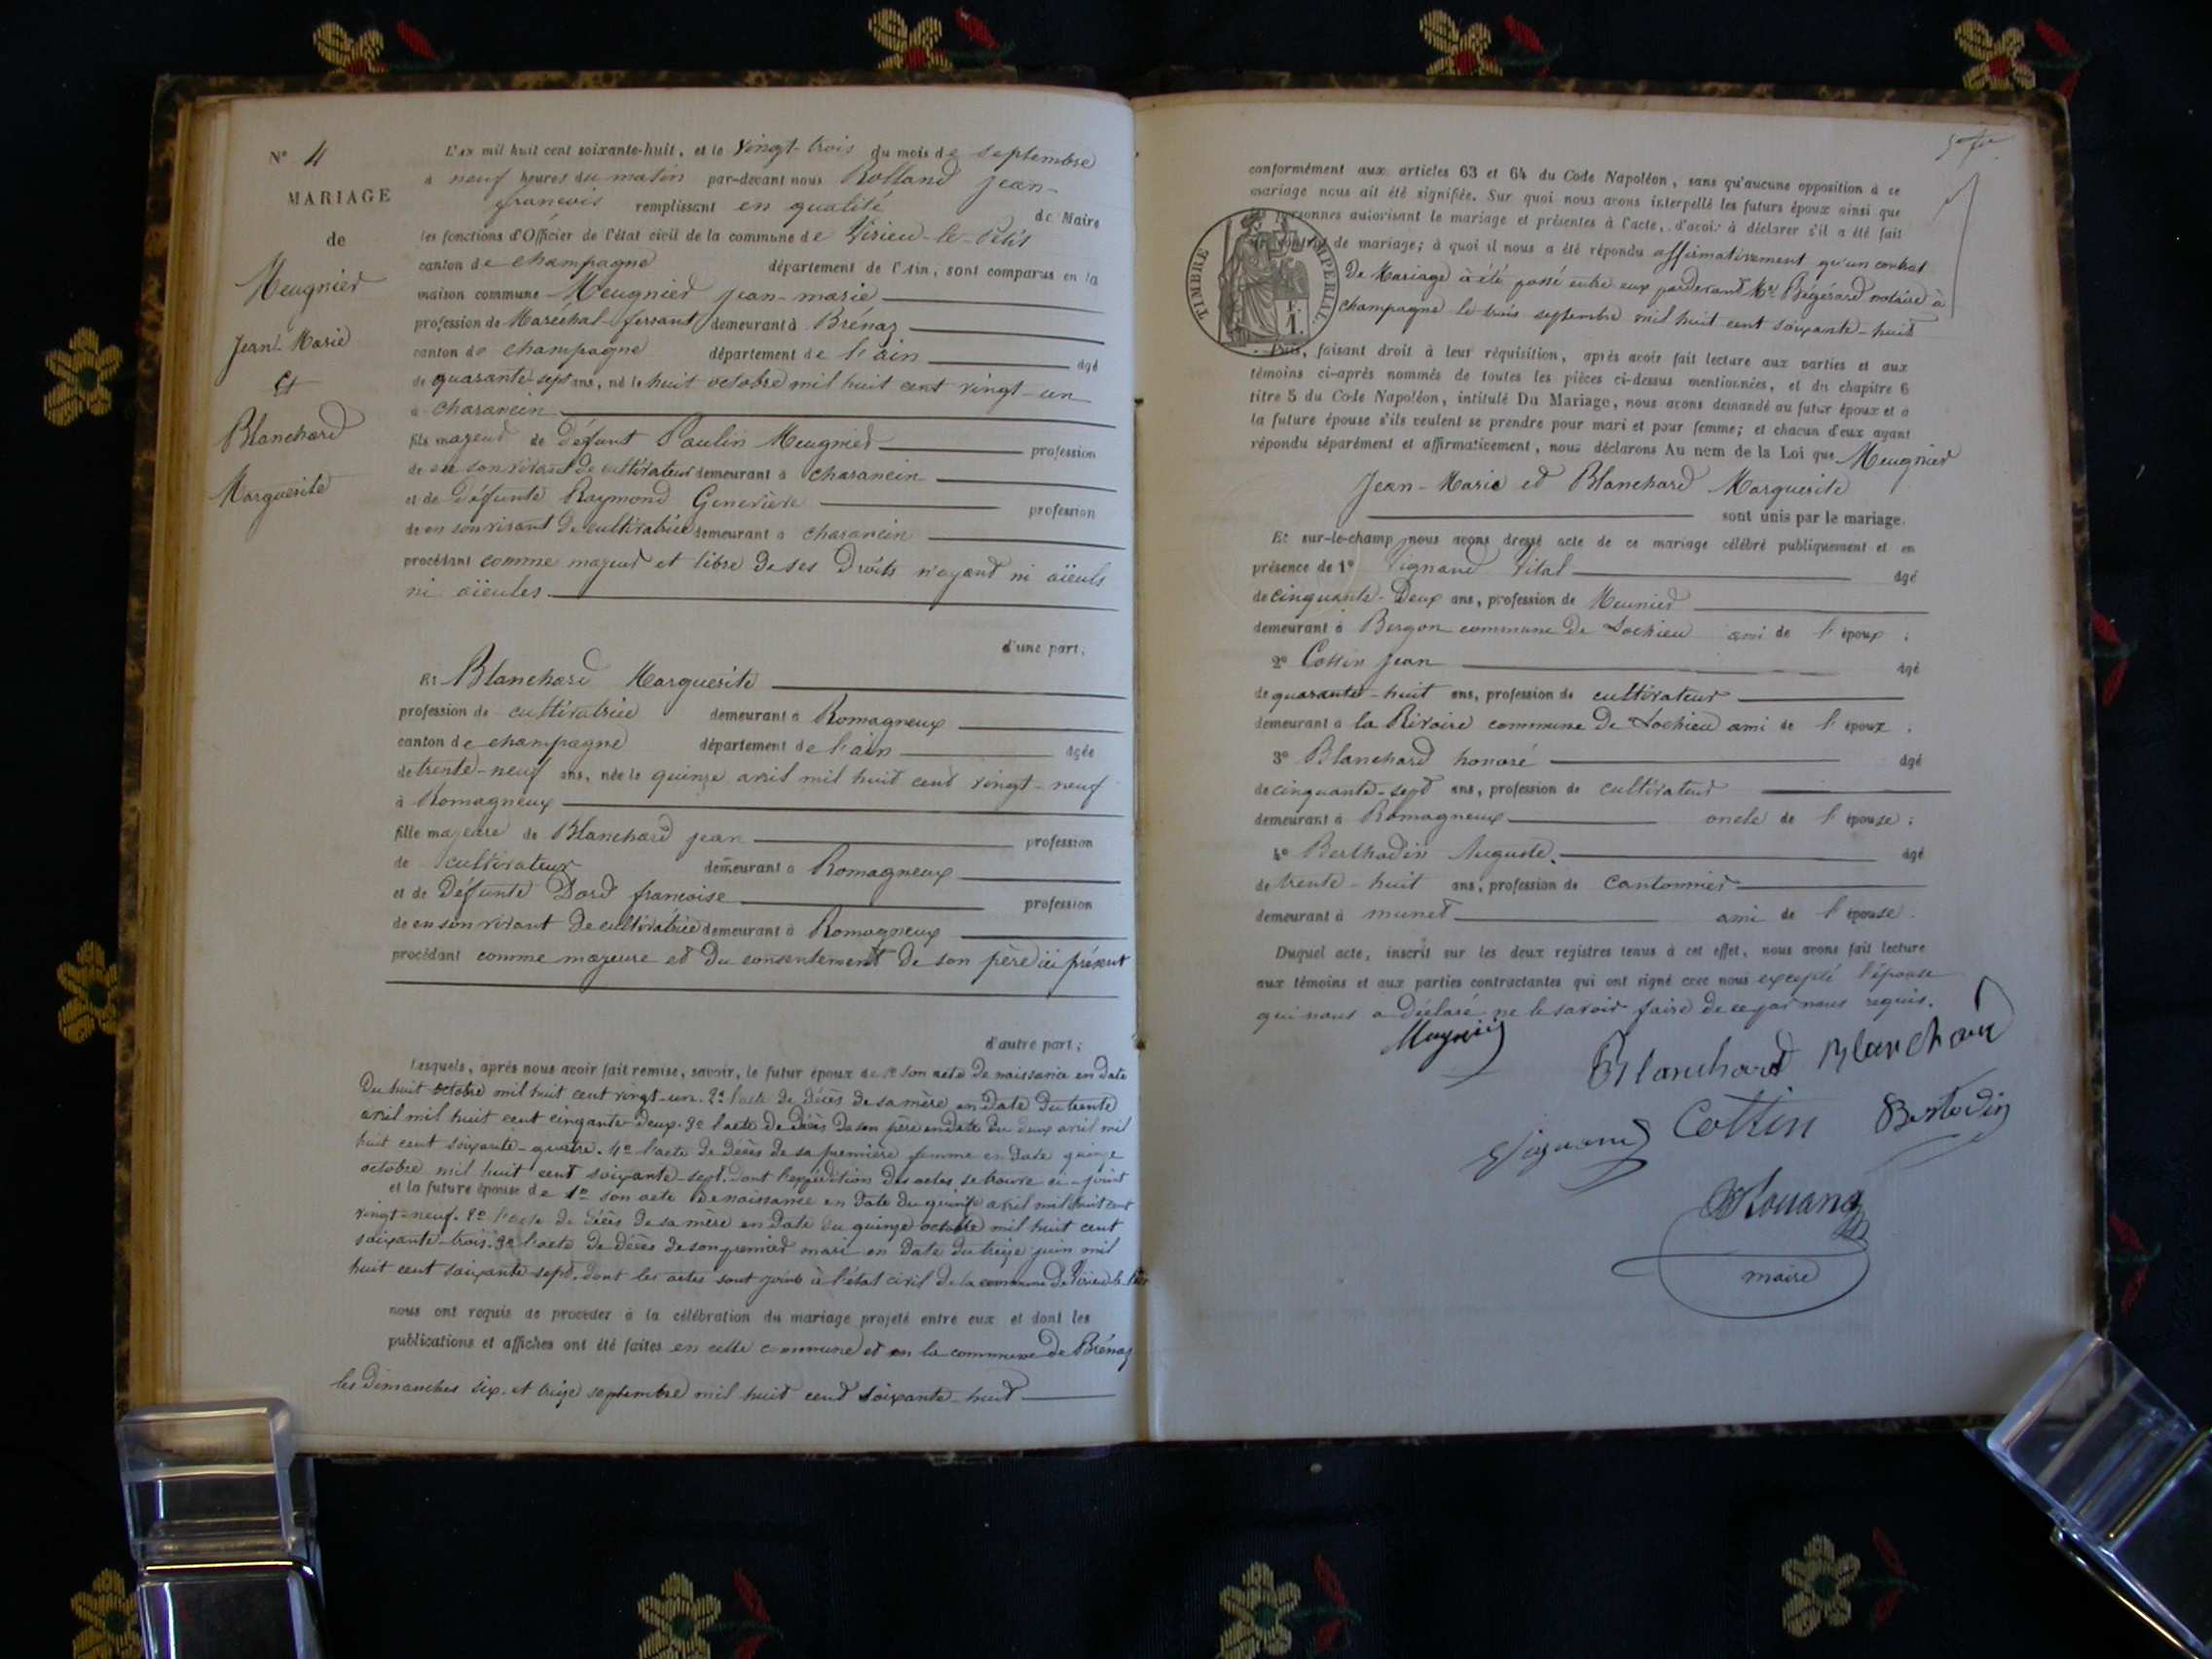 N° 4
MARIAGE
de
Meugnier
Jean-Marie
Et
Blanchard
Marguerite
L'an mil huit cent soixante-huit, et le vingt-trois du mois de septembre
à neuf heures du matin par-devant nous Rolland jean-
françois remplissant en qualité de Maire
les fonctions d'Officier de l'état civil de la commune de Virieu-le-Petit
canton de champagne département de l'Ain, sont comparus en la
maison commune Meugnier jean-marie
profession de Maréchal-ferrant demeurant à Brénaz
canton de champagne département de l'ain âgé
de quarante-sept ans, né le huit octobre mil huit cent vingt-un
à charancin
fils majeur de défunt Paulin Meugnier profession
de en son vivant de cultivateur demeurant à charancin
et de défunte Raymond Geneviève profession
de en son vivant de cultivatrice demeurant à charancin
procédant comme majeur et libre de ses Droits n'ayant ni aïeuls
ni aïeules.
d'une part;
Et Blanchard Marguerite
profession de cultivatrice demeurant à Romagneux
canton de champagne département de l'ain âgée
de trente-neuf ans, née le quinze avril mil huit cent vingt-neuf
à Romagneux
fille majeure de Blanchard jean profession
de cultivateur demeurant à Romagneux
et de défunte Dord françoise profession
de en son vivant de cultivatrice demeurant à Romagneux
procédant comme majeure et du consentement de son père ici présent
d'autre part;
Lesquels, après nous avoir fait remise, savoir, le futur époux de 1° son acte de naissance en date
Du huit octobre mil huit cent vingt-un. 2° l'acte de décès de sa mère en date du trente
avril mil huit cent cinquante-deux. 3° l'acte de décès de son père en date du deux avril mil
huit cent soixante-quatre. 4° l'acte de décès de sa première femme en date quinze
octobre mil huit cent soixante-sept. dont l'expédition des actes se trouve ci-joint
et la future épouse de 1° son acte de naissance en date du quinze avril mil huit cent
vingt-neuf. 2° l'acte de décès de sa mère en date du quinze octobre mil huit cent
soixante-trois. 3° l'acte de décès de son premier mari en date du treize juin mil
huit cent soixante sept. dont les actes sont joints à l'état civil de la commune de Virieu-le-Petit
nous ont requis de procéder à la célébration du mariage projeté entre eux et dont les
publications et affiches ont été faites en cette commune et en la commune de Brénaz
les dimanches six et treize septembre mil huit cent soixante-huit
conformément aux articles 63 et 64 du Code Napoléon, sans qu'aucune opposition à ce
mariage nous ait été signifiée. Sur quoi nous avons interpellé les futurs époux ainsi que
les personnes autorisant le mariage et présentes à l'acte, d'avoir à déclarer s'il a été fait
un contrat de mariage; à quoi il nous a été répondu affirmativement qu'un contrat
de Mariage à été passé entre eux pardevant Mr notaire à
champagne le trois septembre mil huit cent soixante-huit
TIMBRE IMPERIAL
F.
1.
Puis, faisant droit à leur réquisition, après avoir fait lecture aux parties et aux
témoins ci-après nommés de toutes les pièces ci-dessus mentionnées, et du chapitre 6
titre 5 du Code Napoléon, intitulé Du Mariage, nous avons demandé au futur époux et à
la future épouse s'ils veulent se prendre pour mari et pour femme; et chacun d'eux ayant
répondu séparément et affirmativement, nous déclarons Au nom de la Loi que Meugnier
Jean-Marie et Blanchard Marguerite
sont unis par le mariage.
Et sur-le-champ nous avons dressé acte de ce mariage célébré publiquement et en
présence de 1° Vignand Vital âgé
de cinquante-Deux ans, profession de Meunier
demeurant à Bergon commune de Lochieu ami de l'époux;
2° Cottin jean âgé
de quarante-huit ans, profession de cultivateur
demeurant à la Rivoire commune de Lochieu ami de l'époux.
3° Blanchard honoré âgé
de cinquante-sept ans, profession de cultivateur
demeurant à Romagneux oncle de l'épouse;
4° Berthodin Auguste. âgé
de trente-huit ans, profession de cantonnier
demeurant à munet ami de l'épouse.
Duquel acte, inscrit sur les deux registres tenus à cet effet, nous avons fait lecture
aux témoins et aux parties contractantes qui ont signé avec nous excepté l'épouse
qui nous a déclaré ne le savoir faire de ce par nous requis.
Blanchard Blanchard
Vignand Cottin Bertodin
maire